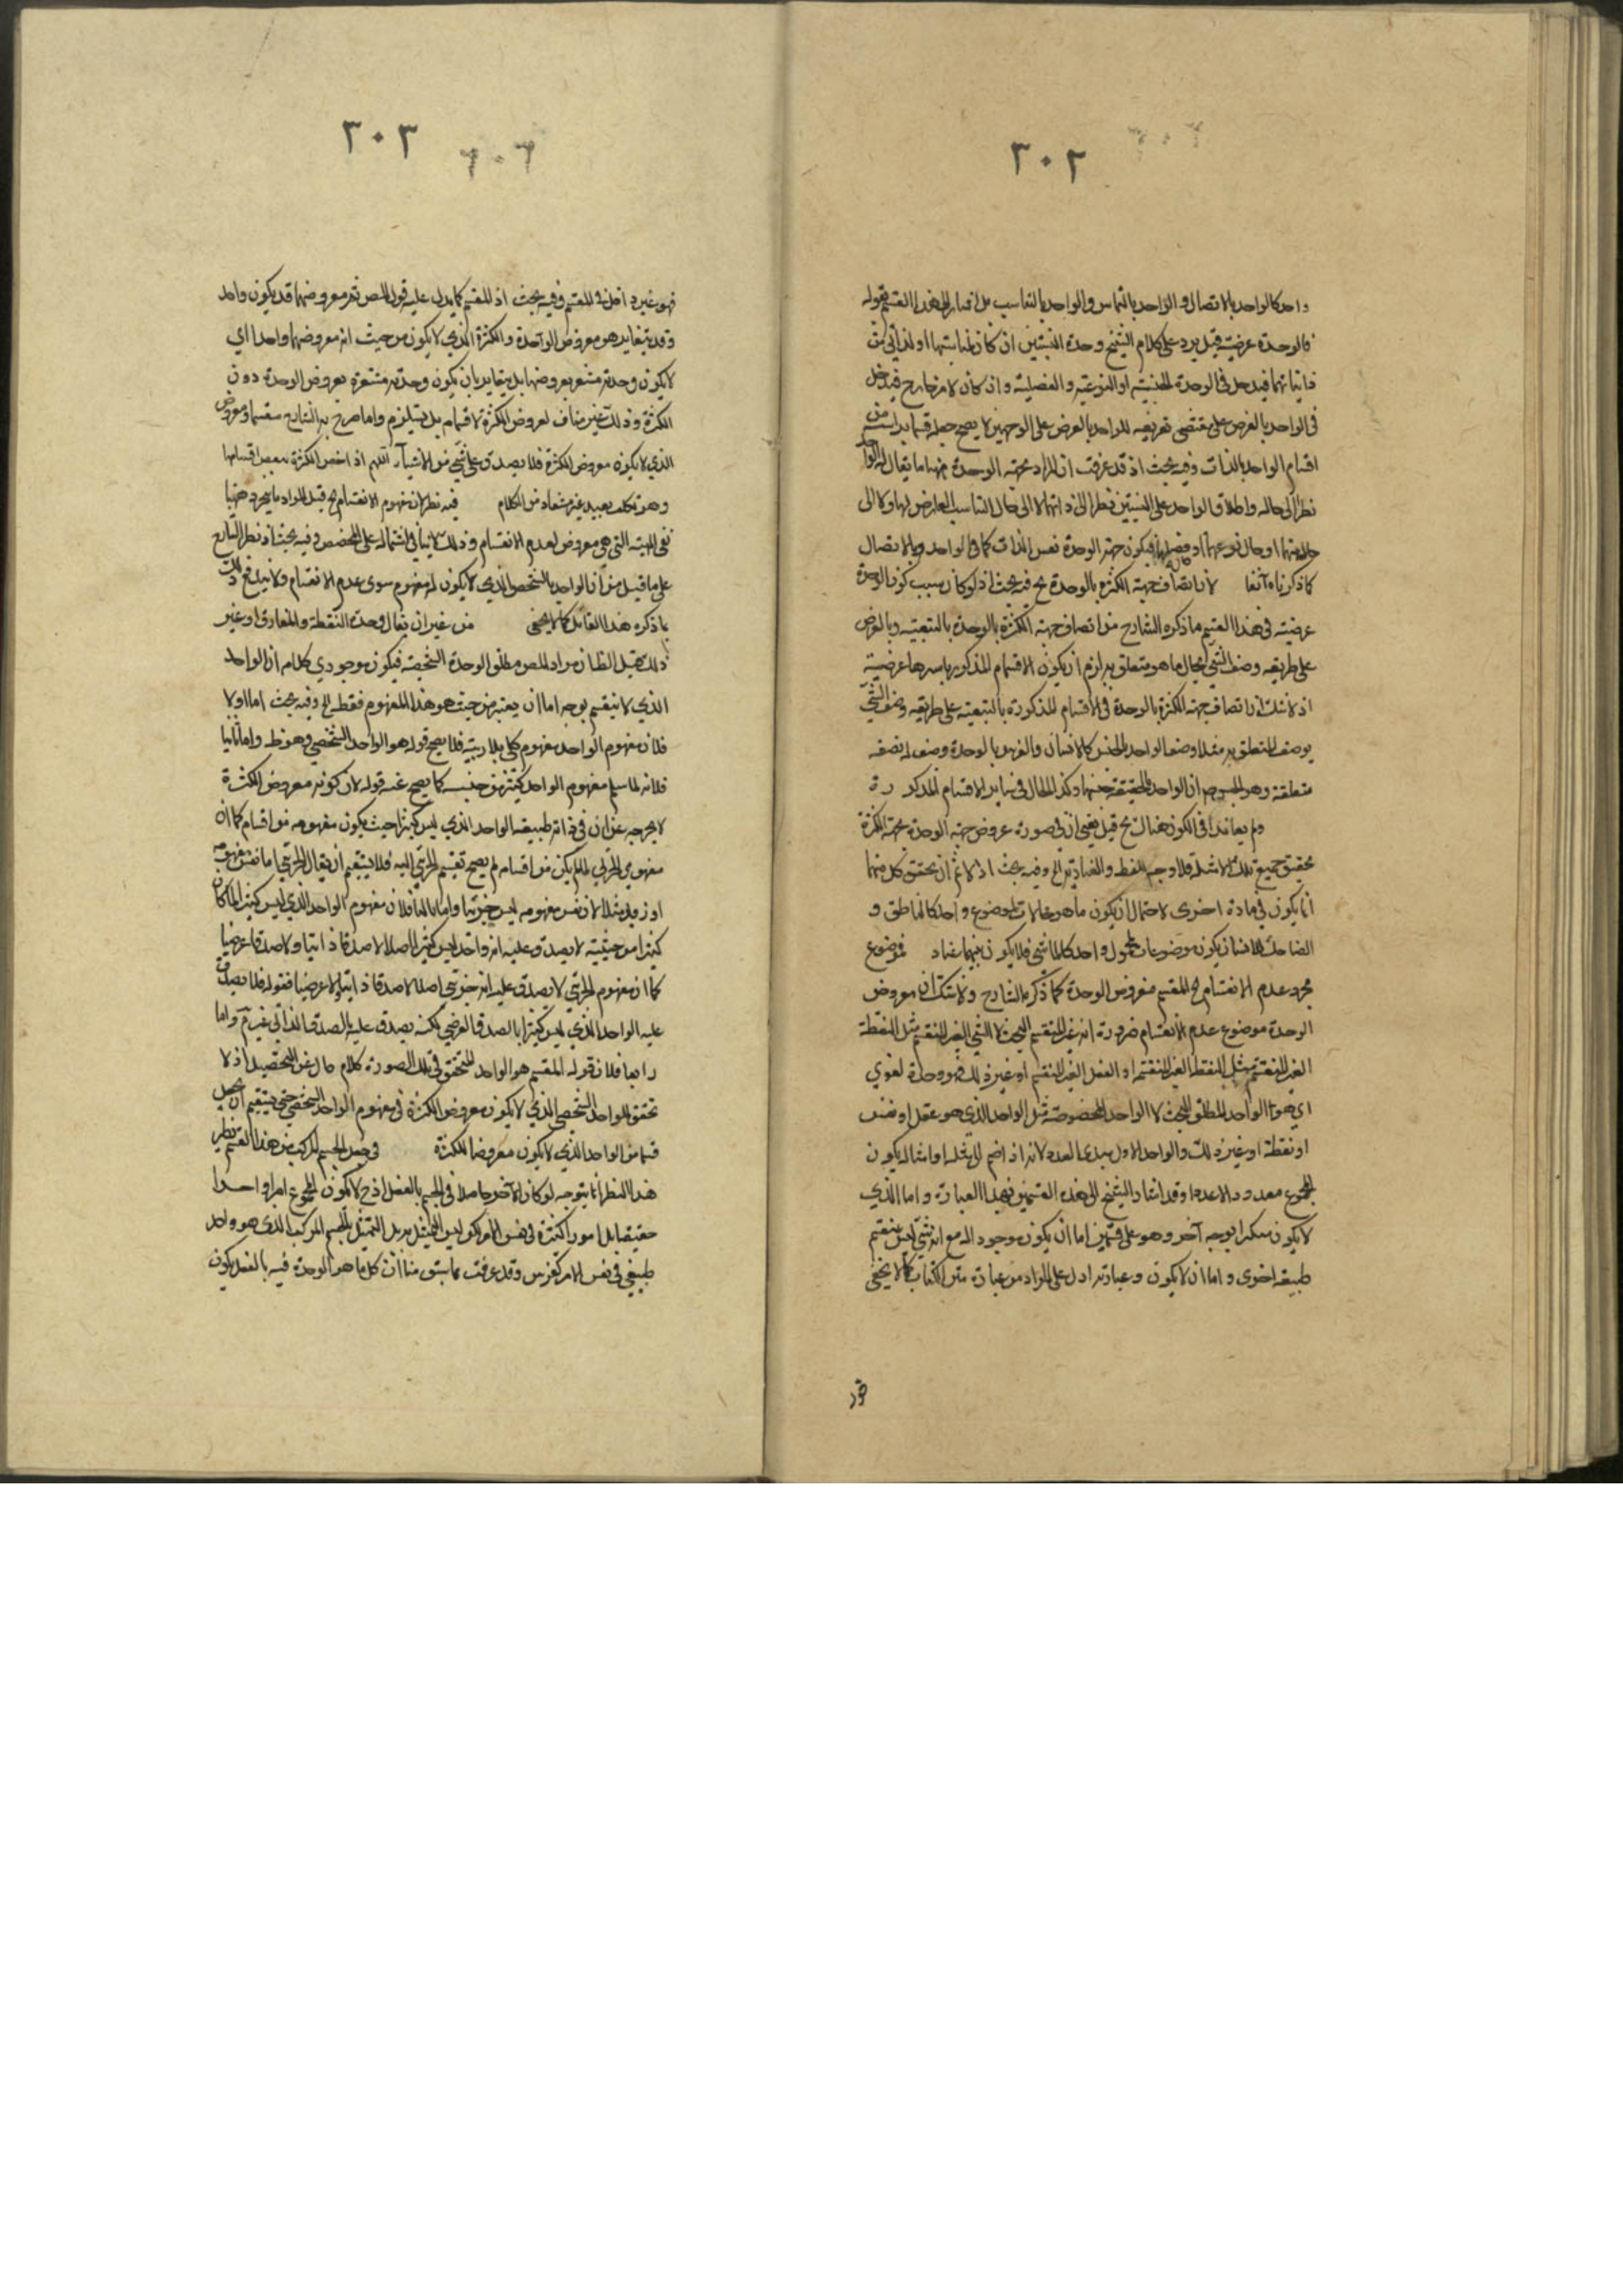 ٣٠٢
واحد كالواحد بالاتصال والواحد بالتماس والواحد بالتناسب بل اشار الى هذا القسم بقوله
فالوحدة عرضية قيل يرد على كلام الشيخ وحدة النسبتين ان كان
فيدخل في الوحدة الجنسية او النوعية والفصلية وان كان لامر خارج فيدخل
في الواحد بالعرض على مقتضى تعريفه للواحد بالعرض على الوجهين لا يصح جعله قسما براسه من
اقسام الواحد بالذات وفيه بحث اذ قد عرفت ان المراد بجهة الوحدة ههنا ما يقال له الواحد
نظرا الى حاله واطلاق الواحد على النسبتين نظرا الى ذاتهما لا الى حال التناسب العارض لهما ولا الى
فيكون جهة الوحدة نفس الذات كما في الواحد بالاتصال
كما ذكرناه آنفا لان اتصاف جهة الكثرة بالوحدة ح فيه بحث اذ لو كان سبب كون الوحدة
عرضية في هذا القسم ما ذكره الشارح من اتصاف جهة الكثرة بالوحدة بالتبعية وبالعرض
على طريقه وصف الشيء بحال ما هو متعلق به لزم ان يكون الاقسام المذكورة باسرها عرضية
اذ لا شك ان اتصاف جهة الكثرة بالوحدة في الاقسام المذكورة بالتبعية على طريقه وصف الشيء
بوصف المتعلق به مثلا وصف الواحد بالجنس كالانسان والفرس بالوحدة وصف له بصفة
متعلقه وهو الحيوان اذ الواحد بالحقيقة جنسهما وكذا الحال في ساير الاقسام المذكورة
ولم يعاندا في الكون هناك ح قيل يعني ان في صورة عروض جهة الوحدة بجهة الكثرة
تحقيق جميع تلك الامثلة فلا وجه للفظ قد والعبارة الخ وفيه بحث اذ لا ثم ان تحقق كل منهما
انما يكون في مادة اخرى لاحتمال ان يكون ما هو محمولات لموضوع واحد كالناطق و
الضاحك للانسان يكون موضوعات لمحمول واحد كالماشي فلا يكون بينهما عناد فموضوع
مجرد عدم الانقسام ح المقسم معروض الوحدة كما ذكره الشارح ولا شك ان معروض
الوحدة موضوع عدم الانقسام ضرورة انه غير المنقسم البحث لا الشيء الغير المنقسم مثل النقطة
الغير المنقسم مثل النقطة الغير المنقسم او العقل الغير المنقسم او غير ذلك فهو وحدة لغوي
اي هو الواحد المطلق البحث لا الواحد المخصوصة مثل الواحد الذي هو عقل او نفس
او نقطة او غير ذلك والواحد الاول مبدا العدد لانه اذا ضم الى مثله او امثاله يكون
المجموع معدودا لاعداد وقد اشار الشيخ الى هذه القسمين بهذا العبارة واما الذي
لا يكون متكثرا بوجه آخر وهو على قسمين اما ان يكون موجودا له مع انه شيء ليس بمنقسم
طبيعة اخرى واما ان لا يكون وعبارته ادل على المراد من عبارة متن الكتاب كما لا يخفى
٣٠٣
فهو غير داخل في المقسم وفيه بحث اذ المقسم كما يدل عليه قول المص ثم معروضهما قد يكون واحد
وقد يتغاير هو معروض الوحدة والكثرة الذي لا يكون من حيث انه معروضهما واحدا اي
لا يكون وحدته مشعر بعروضهما بل يتغاير بان يكون وحدته مشعرة بعروض الوحدة دون
الكثرة وذلك غير مناف لعروض الكثرة لاقسامه بل يستلزم واما صرح به الشارح
الذي لا يكون معروض الكثرة فلا يصدق على شيء من الاشياء اللهم اذ اخص الكثرة ببعض اقسامها
وهو تكلف بعيد غير مستفاد من الكلام فيه نظر لان مفهوم الانقسام ح قيل المراد
نفي الهيئة التي هي معروض لعدم الانقسام وذلك لا ينافي اشتماله على المخصص وفيه بحث اذ نظر الشارح
على ما قيل من ان الواحد بالشخص الذي لا يكون له مفهوم سوى عدم الانقسام ولا يندفع ذلك
بما ذكره هذا القائل كما لا يخفى من غير ان يقال وحدة النقطة والمفارق او غير
ذلك قيل الظ ان مراد المص مطلق الوحدة الشخصية فيكون موجودي كلامه ان الواحد
الذي لا ينقسم بوجه اما ان يعتبر من حيث هو هذا المفهوم فقط الخ وفيه بحث اما اولا
فلان مفهوم الواحد مفهوم كلي بلا ريبة فلا يصح قوله هو الواحد الشخصي وهو ظ واما ثانيا
فلانه لما سلم مفهوم الواحد كثير من جنسه كما يصح عنه قوله لان كونه معروض الكثرة
لا يخرجه عن ان في ذاته طبيعة الواحد الذي ليس كثيرا حيث يكون مفهومه من اقسامه كما ان
مفهوم الجزئي لما لم يكن من اقسامه لم يصح تقسيم الجزئي اليه فلا يستقيم ان يقال الجزئي اما نفس مفهومه
او زيد مثلا لان نفس مفهومه ليس جزئيا واما ثالثا فلان مفهوم الواحد الذي ليس كثيرا لما كان
كثيرا من حيثية لا يصدق عليه انه واحد ليس كثيرا اصلا لا صدقا ذاتيا ولا صدقا عرضيا
كما ان مفهوم الجزئي لا يصدق عليه انه جزئي اصلا لا صدقا ذاتيا ولا عرضيا فقوله فلا يصدق
عليه الواحد الذي ليس كثيرا بالصدق العرضي لكنه يصدق عليه بالصدق الذاتي غير تم واما
رابعا فلان قوله المقسم هو الواحد المتحقق في تلك الصورة كلام خال عن التحصيل اذ لا
تحقق للواحد الشخصي الذي لا يكون معروض الكثرة في مفهوم الواحد الشخصي حتى يستقيم ان يجعل
قسما من الواحد الذي لا يكون معروضا للكثرة في جعل الجسم المركب من هذا القسم نظر
هذا النظر انما يتوجه لو كان الآخر حاصلا في الجسم بالفعل اذ ح لا يكون المجموع امرا واحدا
حقيقيا بل امورا كثيرة في نفس الامر
طبيعي في نفس الامر كفرس وقد عرفت مما سبق منا ان كل ما هو الوحدة فيه بالفعل يكون